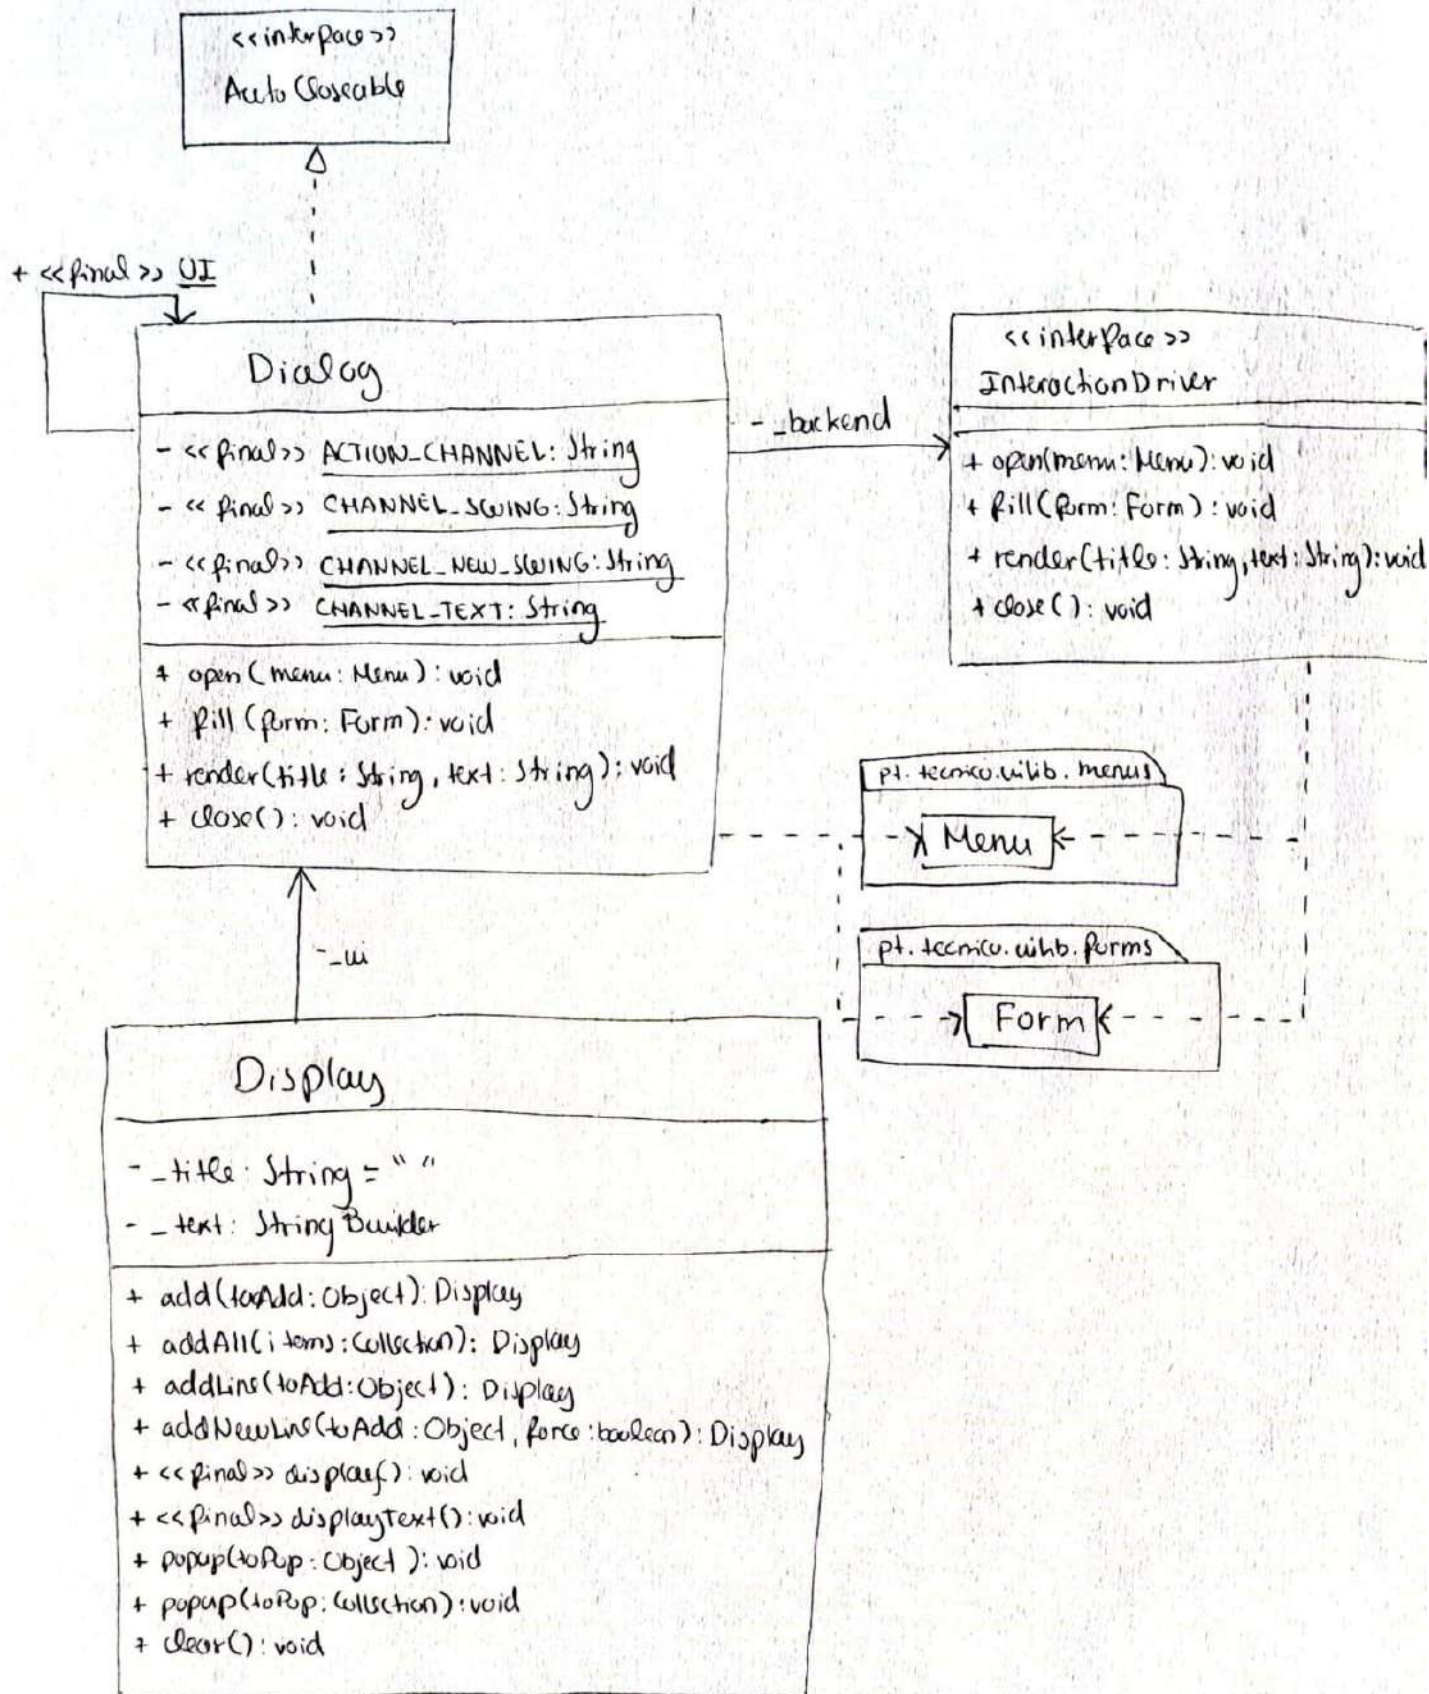 <<interface>>
AutoCloseable
+ <<final>> UI
Dialog
- <<final>> ACTION_CHANNEL: String
- <<final>> CHANNEL_SWING: String
- <<final>> CHANNEL_NEW_SWING: String
- <<final>> CHANNEL_TEXT: String
+ open(menu: Menu): void
+ fill(form: Form): void
+ render(title: String, text: String): void
+ close(): void
- _backend
<<interface>>
InteractionDriver
+ open(menu: Menu): void
+ fill(form: Form): void
+ render(title: String, text: String): void
+ close(): void
pt.tecnico.uilib.menus
Menu
pt.tecnico.uilib.forms
Form
- _ui
Display
- _title: String = " "
- _text: StringBuilder
+ add(toAdd: Object): Display
+ addAll(items: Collection): Display
+ addLine(toAdd: Object): Display
+ addNewLine(toAdd: Object, force: boolean): Display
+ <<final>> display(): void
+ <<final>> displayText(): void
+ popup(toPop: Object): void
+ popup(toPop: Collection): void
+ clear(): void